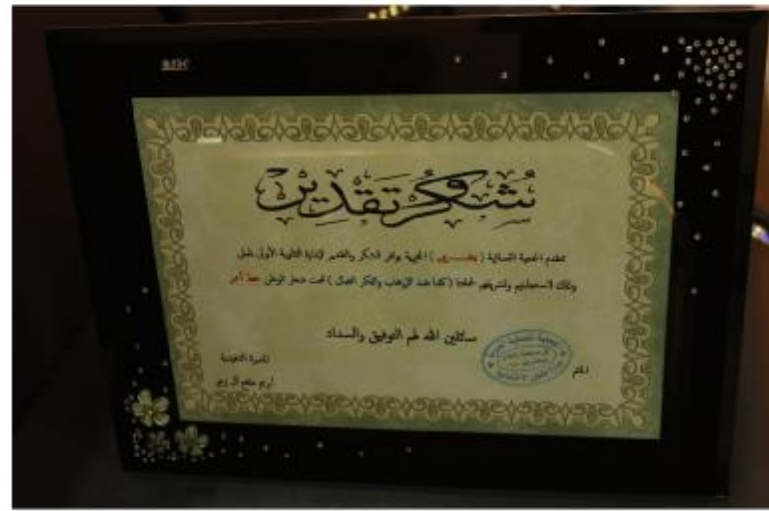 شكر وتقدير
تتقدم الجمعية النسائية ( بحسـن ) الخيرية بوافر الشكر والتقدير لإدارة الثانوية الأولى
وذلك لاستضافتهم وتشريفهم لحملتنا ( كلنا ضد الإرهاب والفكر الضال ) تحت شعار الوطن خط أحمر
سائلين الله لهم التوفيق والسداد
المديرة التنفيذية
الختم